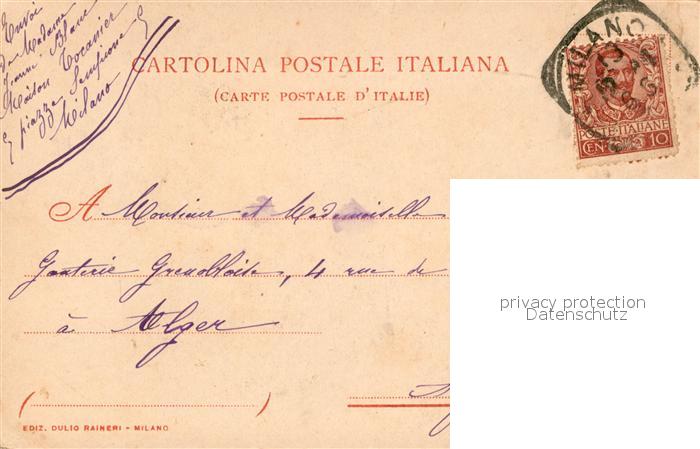 Envoi
de Madame
Jeanne Blanc
Maison Tocanier
5 piazza Sempione 5
Milano
CARTOLINA POSTALE ITALIANA
(CARTE POSTALE D'ITALIE)
MILANO
POSTE·ITALIANE
CEN 10
A Monsieur et Mademoiselle
Ganterie Grenobloise, 4 rue de
à Alger
EDIZ. DULIO RAINERI - MILANO
privacy protection
Datenschutz